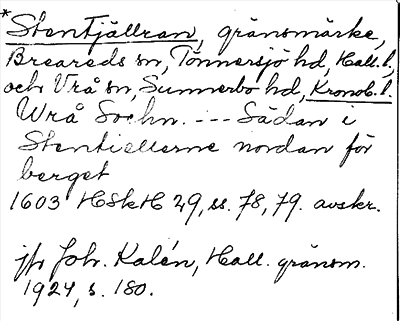 *Stentjällran, gränsmärke,
Breareds sn, Tönnersjö hd, Hall. l,
och Vrå sn, Sunnerbo hd, Kronob. l.
Wrå Sochn. --- Sådan i
Stentiellerne nordan för
berget
1603 HSkH 29, ss. 78, 79. avskr.
jfr Joh. Kalén, Hall. gränsm.
1924, s. 180.